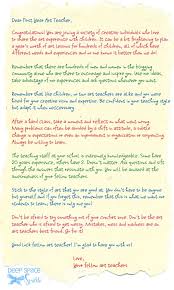 Dear First Year Art Teacher,
Congratulations! You are joining a variety of creative individuals who love
to share the art experience with children. It can be a bit frightening to plan
a year's worth of art lessons for hundreds of children, all of which have
different needs and experiences and no one knows it better than we do!
Remember that there are hundreds of men and women in the blogging
community alone who are dying to share their experience to you. Use our ideas,
take advantage of our experiences and ask questions.
Remember that there are thousands of children who are and were
for your creative view and expertise. Be confident in your teaching style
and adapt it when necessary.
After a hard class, take a moment and reflect on what went wrong.
Many problems can often be avoided by a shift in attitude, a subtle
change in expectations or more improvement in organization or organizing
things. Always be willing to learn.
The teaching staff at your school is immensely knowledgeable. Some have
20 years experience, others have 3. Chat with your fellow teachers
and learn from their unique perspective. You will be amazed at the
awesomeness of your fellow teachers.
Stick to the style of art that you are good at. You don't have to be anyone
but yourself, and if you forget this, remember that this is what we want our
students to learn: there is only one you!
Don't be afraid to try something out of your comfort zone. Don't be the art teacher
who is afraid to get messy. Mistakes, water and madness are as
art teachers best friend. Go for it!
Good luck fellow art teacher! I'm glad to have you with us!
Love,
Your fellow art teachers
DEEP SPACE
Sparkle